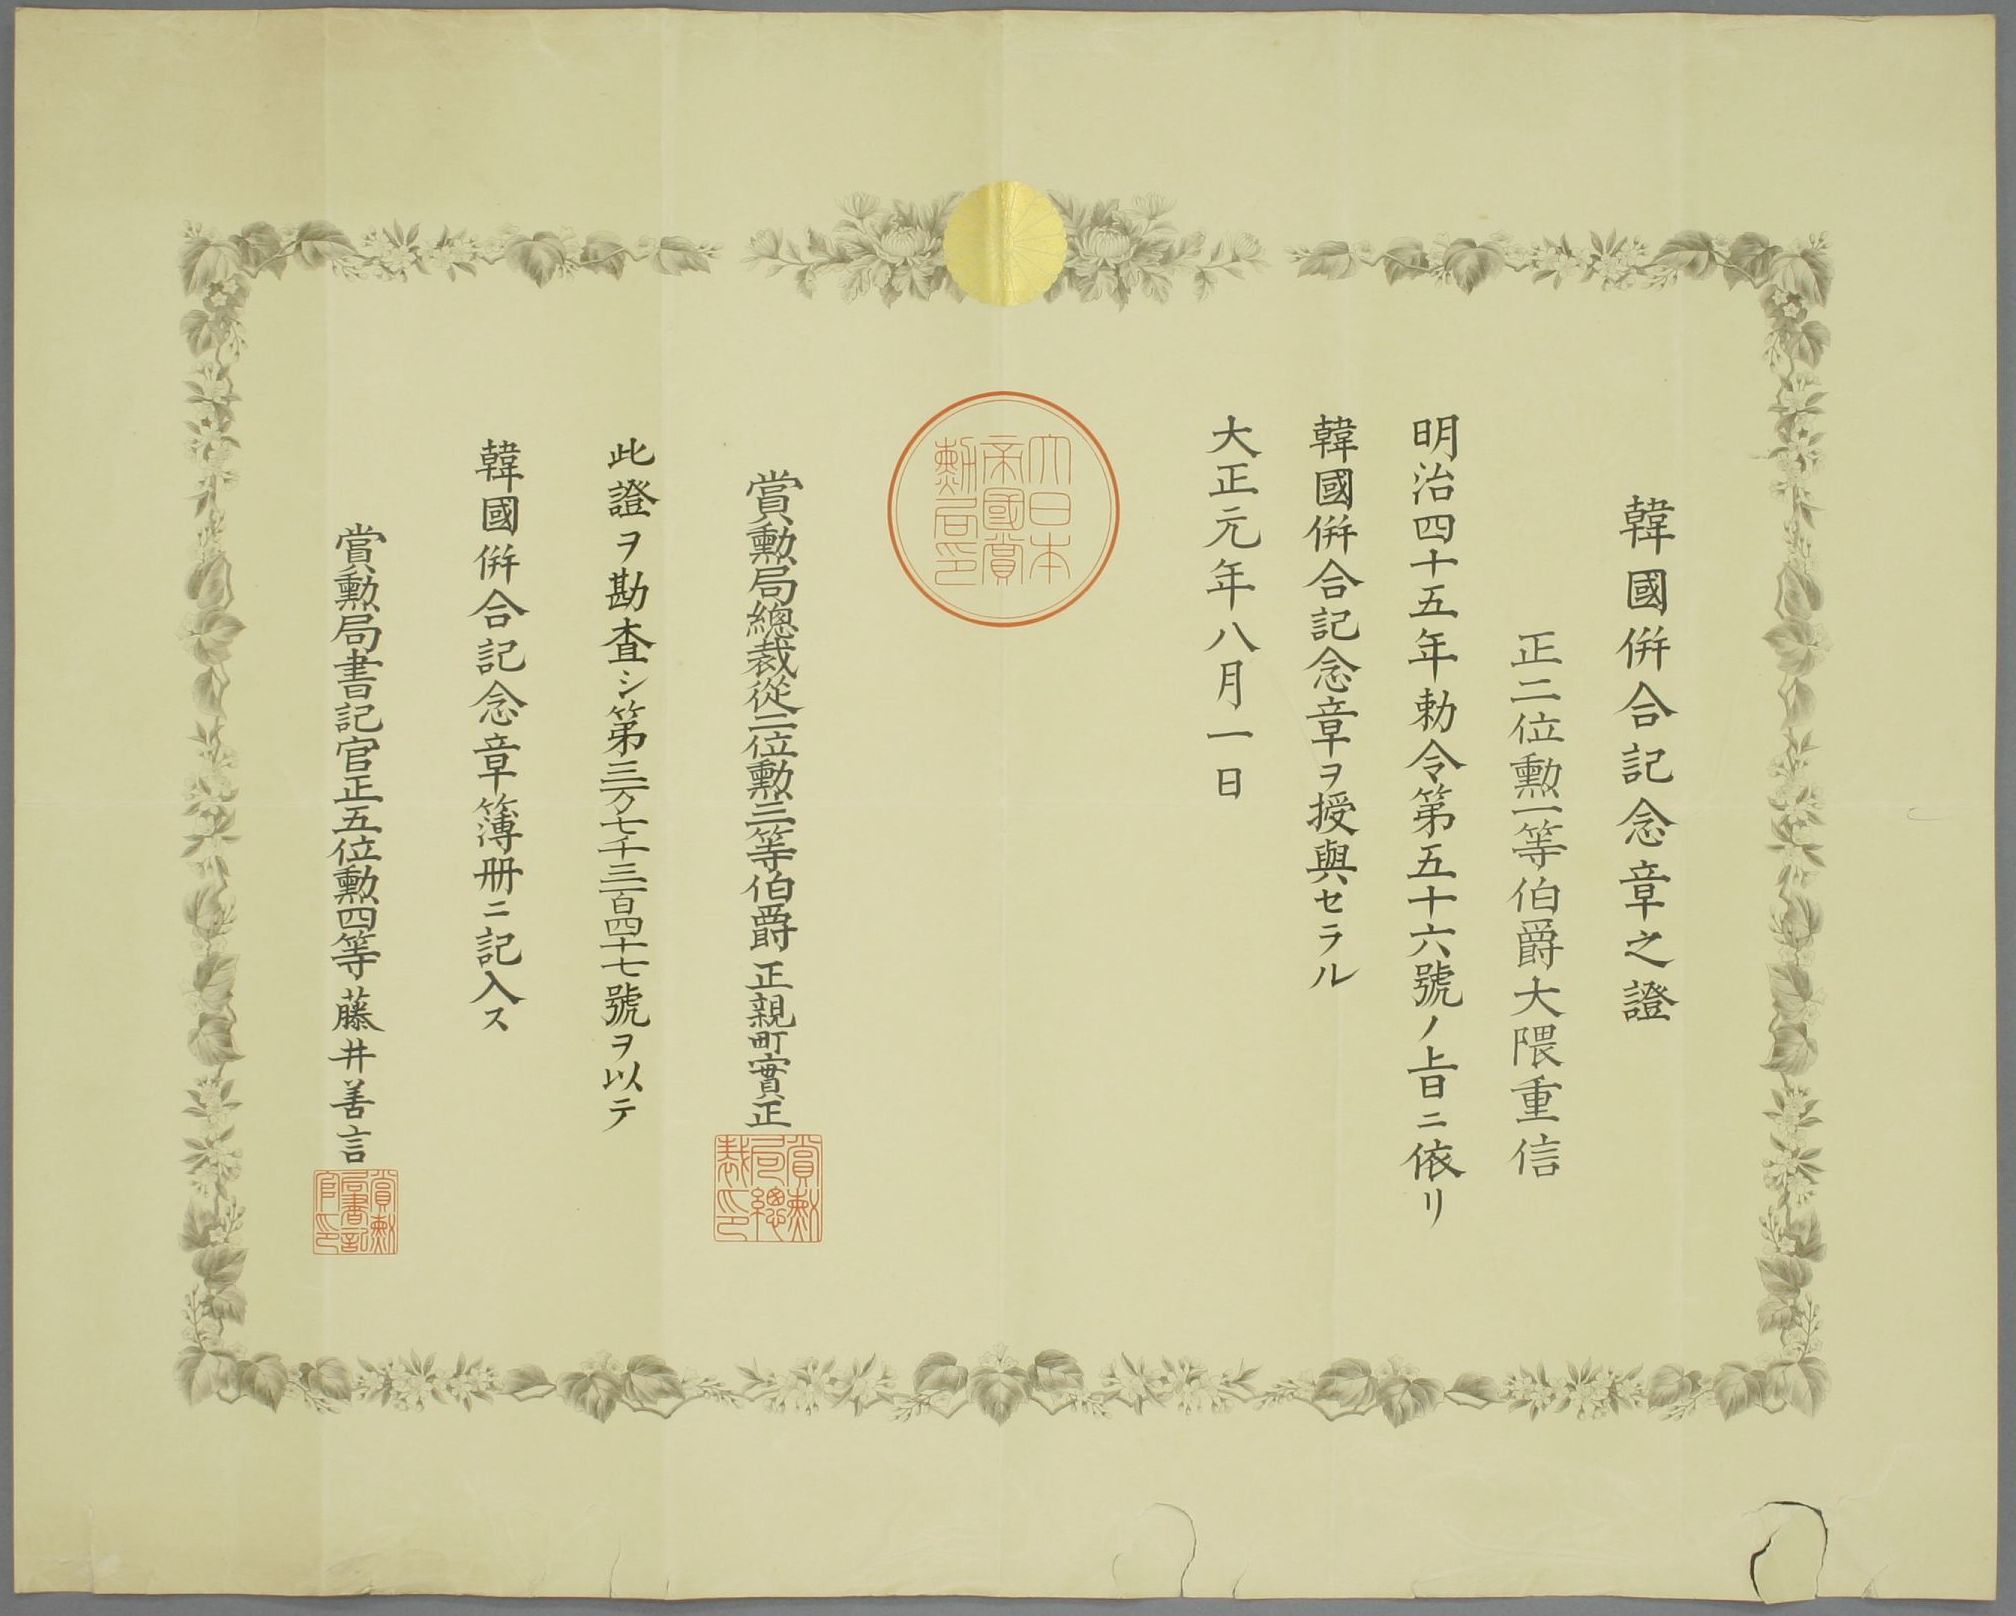 韓國倂合記念章之證
正二位勲一等伯爵大隈重信
明治四十五年勅令第五十六號ノ旨ニ依リ
韓國倂合記念章ヲ授與セラル
大正元年八月一日
大日本
帝國賞
勲局印
賞勲局總裁從二位勲三等伯爵正親町實正
賞勲
局總
裁印
此證ヲ勘査シ第三万七千三百四十七號ヲ以テ
韓國倂合記念章簿冊ニ記入ス
賞勲局書記官正五位勲四等藤井善言
賞勲
局書記
官印